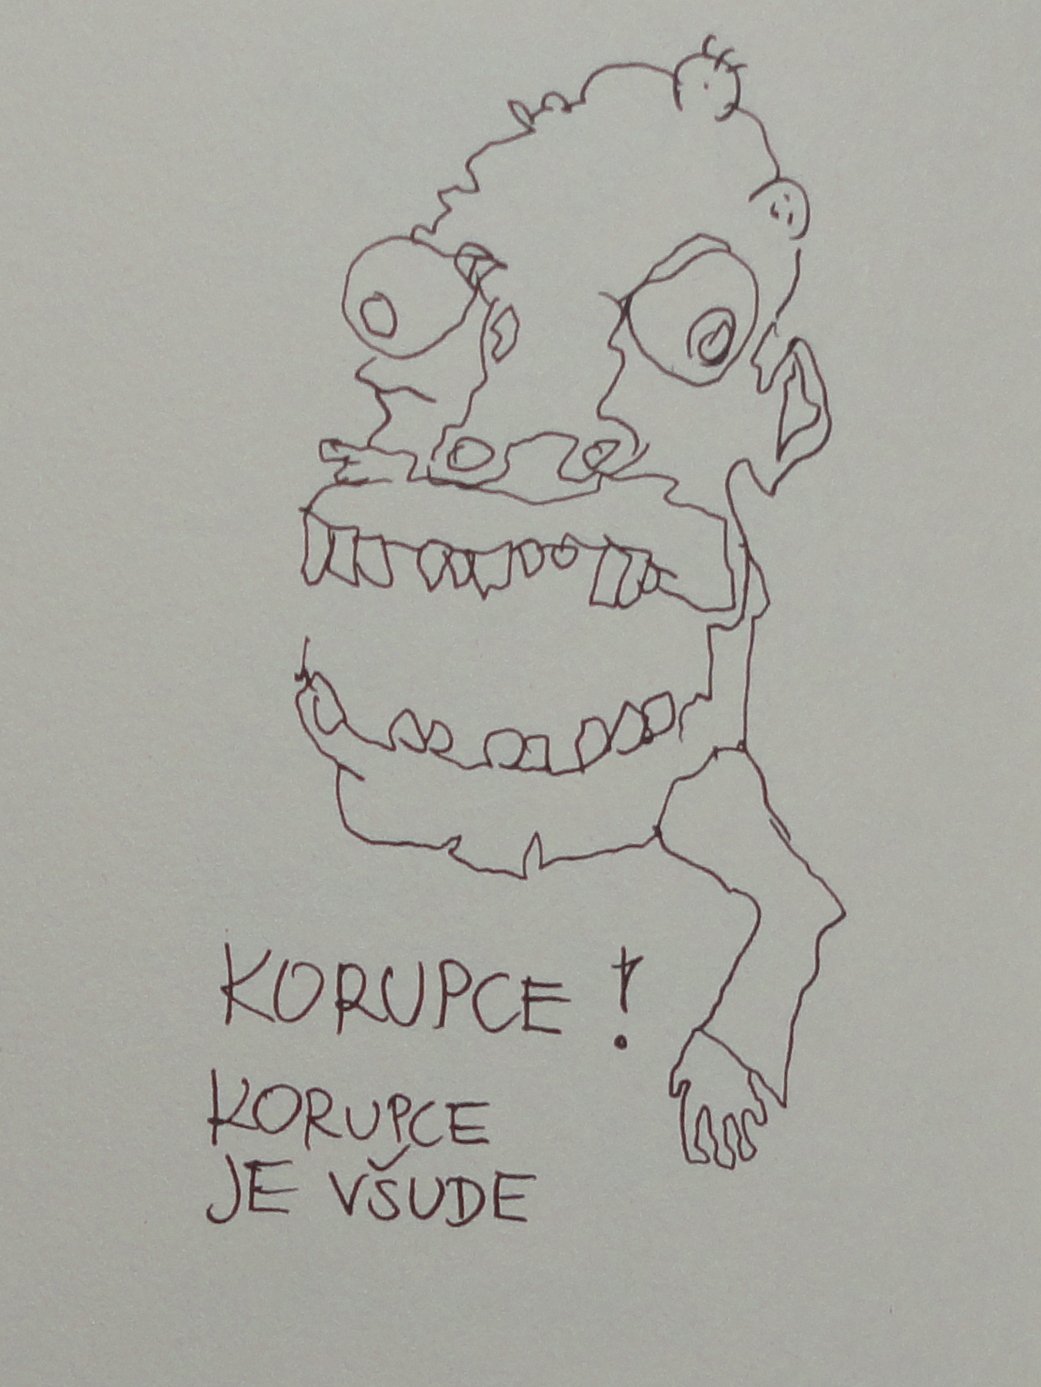 KORUPCE !
KORUPCE
JE VŠUDE